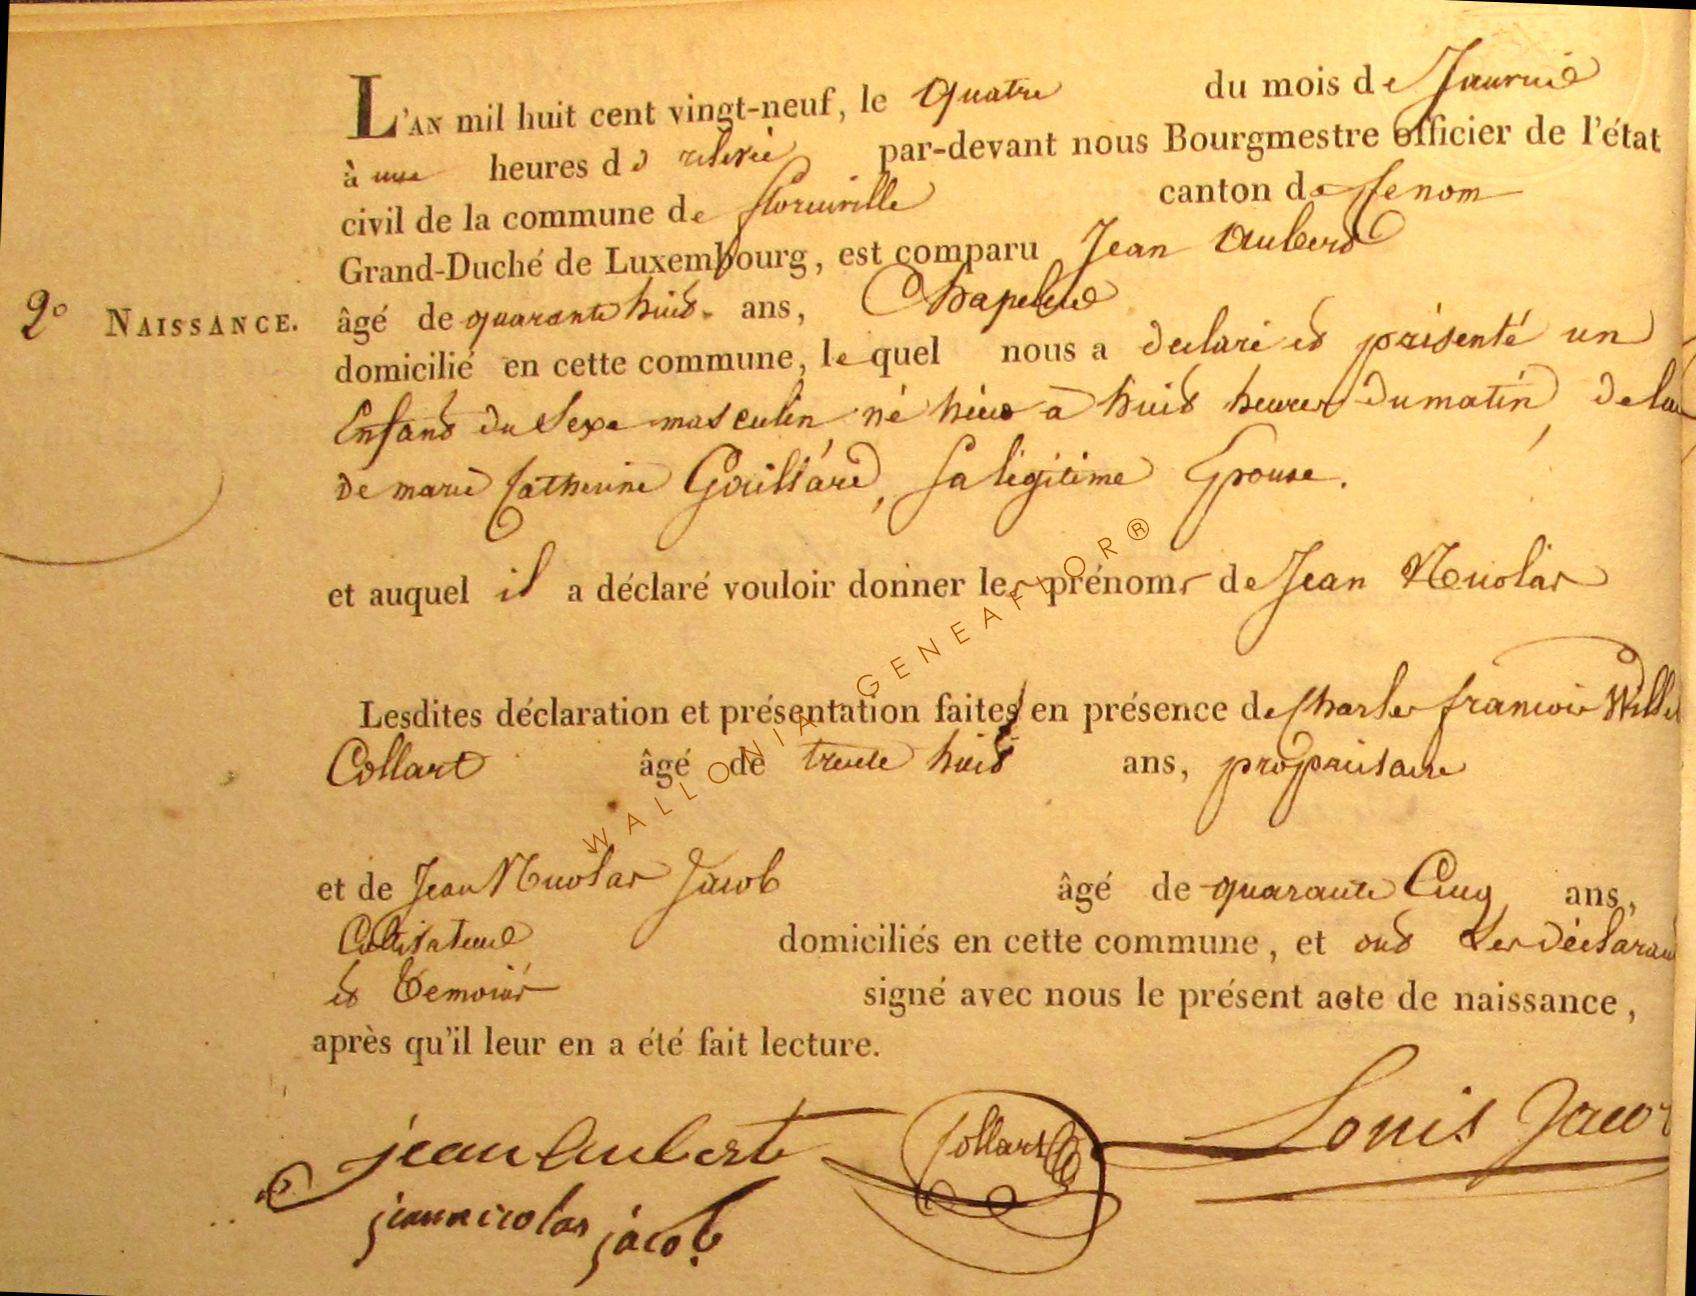 L'AN mil huit cent vingt-neuf, le quatre du mois de Janvier
à une heures de relevée par-devant nous Bourgmestre officier de l'état
civil de la commune de florenville canton de
Grand-Duché de Luxembourg, est comparu Jean Aubert
2° NAISSANCE. âgé de quarante huit ans, Chapelier
domicilié en cette commune, lequel nous a declaré et présenté un
Enfant du Sexe masculin né hier à huit heures du matin, de lui
de marie Catherine Goüllard, sa légitime Epouse.
et auquel il a déclaré vouloir donner les prénoms de Jean Nicolas
Lesdites déclaration et présentation faites en présence de Charles francois
Collart âgé de trente huit ans, propriétaire
et de Jean Nicolas Jacob âgé de quarante Cinq ans,
Cultivateur domiciliés en cette commune, et ont Les déclarant
et Temoins signé avec nous le présent acte de naissance,
après qu'il leur en a été fait lecture.
jean Aubert Collart Louis Jacob
jean nicolas jacob
WALLONIA GENEAFLOR®